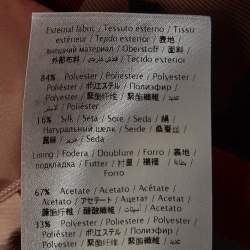 External fabric / Tessuto esterno / Tissu
extérieur / Tejido exterior / 表地
внешний материал / Oberstoff / 面料
/ 外部布料 / Tecido exterior
84% Polyester / Poliestere / Polyester /
Poliéster / ポリエステル / Полиэфир /
Polyester / 聚酯纤维 / 聚酯纖維 /
/ Poliéster
16% Silk / Seta / Soie / Seda / 絹
/ Натуральный шелк / Seide / 桑蚕丝 /
蠶絲 / / Seda
Lining / Fodera / Doublure / Forro / 裏地
подкладка / Futter / 衬里 / 襯裡 /
Forro
67% Acetate / Acetato / Acétate /
Acetato / アセテート / Ацетат /
Acetat / 醋酯纤维 / 醋酸纖維 /
/ Acetato
33% Polyester / Poliestere / Polyester /
Poliéster / ポリエステル / Полиэфир /
Polyester / 聚酯纤维 / 聚酯纖維 /